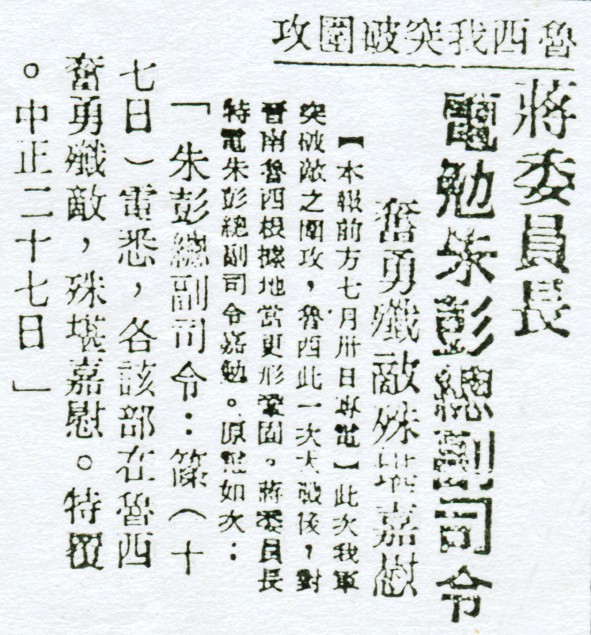 魯西我突破圍攻
蔣委員長
電勉朱彭總副司令
奮勇殲敵殊堪嘉慰
【本報前方七月卅日專電】此次我軍
突破敵之圍攻，魯西此一次大戰後，對
晉南魯西根據地當更形鞏固。蔣委員長
特電朱彭總副司令嘉勉。原電如次：
「朱彭總副司令：篠（十
七日）電悉，各該部在魯西
奮勇殲敵，殊堪嘉慰。特覆
。中正二十七日」